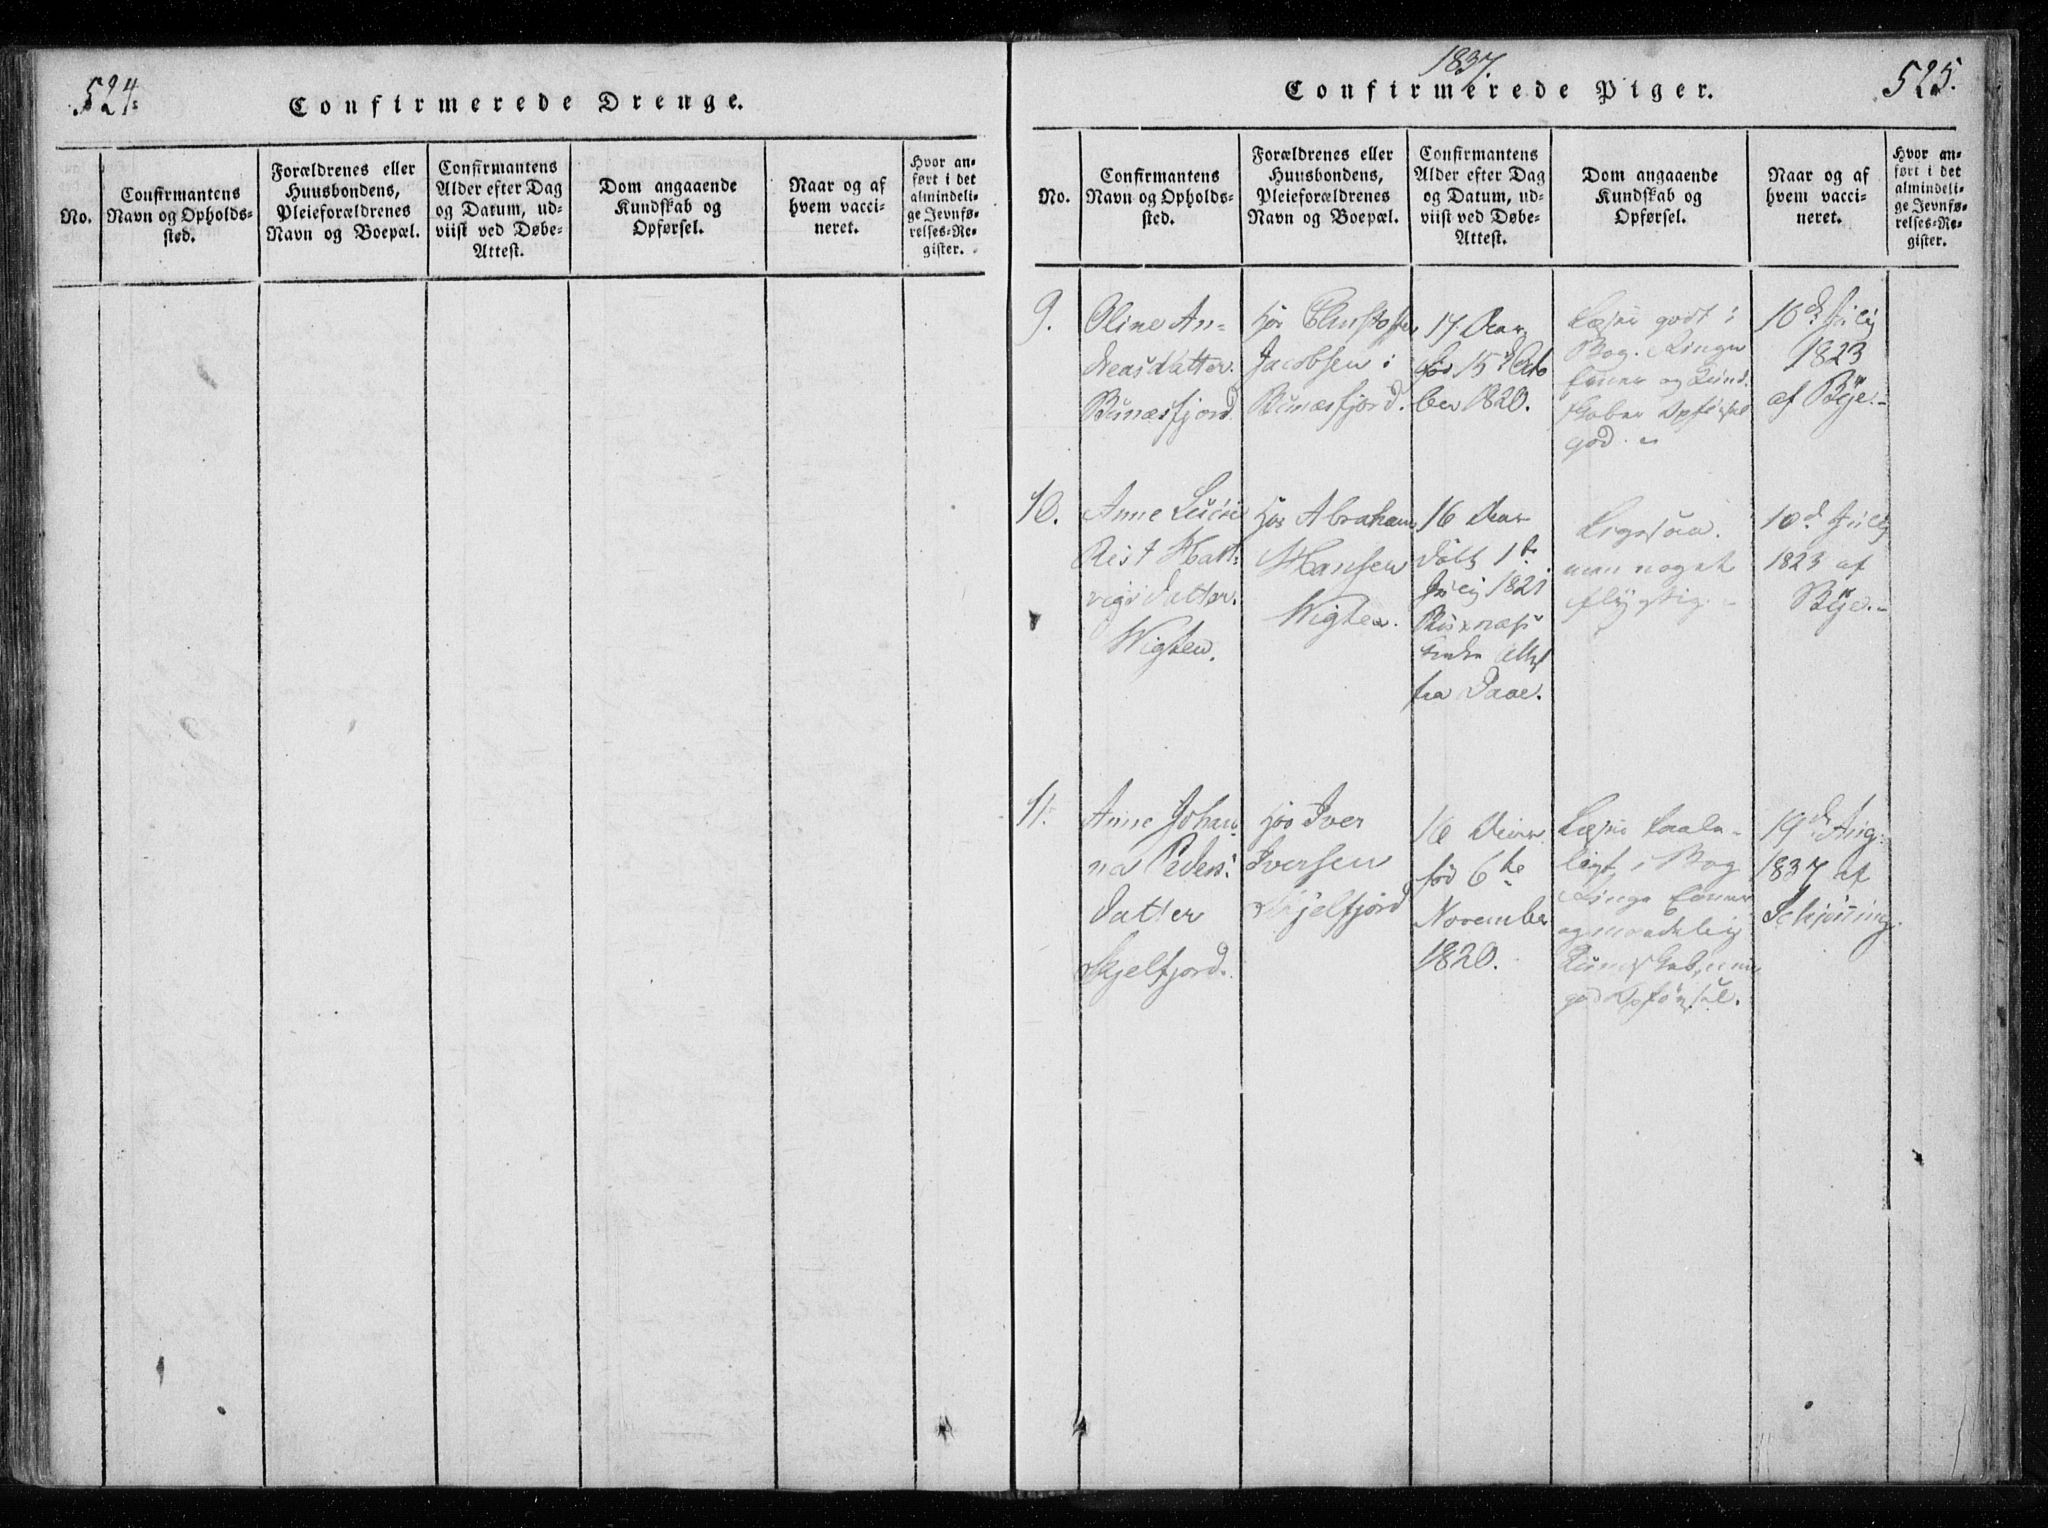 524.
Confirmerede Drenge.
No.
Confirmantens
Navn og Opholds-
sted.
Forældrenes eller
Huusbondens,
Pleieforældrenes
Navn og Boepæl.
Confirmantens
Alder efter Dag
og Datum, ud-
viist ved Døbe-
Attest.
Dom angaaende
Kundskab og
Opførsel.
Naar og af
hvem vacci-
neret.
Hvor an-
ført i det
almindeli-
ge Jevnfø-
relses-Re-
gister.
1837.
Confirmerede Piger.
525.
No.
Confirmantens
Navn og Opholds-
sted.
Forældrenes eller
Huusbondens,
Pleieforældrenes
Navn og Boepæl.
Confirmantens
Alder efter Dag
og Datum, ud-
viist ved Døbe-
Attest.
Dom angaaende
Kundskab og
Opførsel.
Naar og af
hvem vacci-
neret.
Hvor an-
ført i det
almindeli-
ge Jevnfø-
relses-Re-
gister.
9.
Oline An-
dreasdatter
Bunæsfjord
hos Christopher
Jacobsen i
Bunæsfjord.
17 Aar
fød 15d Octo
ber 1820.
Læser godt i
Bog. Ringe
Evner og Kund-
skaber Opførsel
god.
10d Julij
1823
af Bye.
10.
Anne Lucie
Hart-
vigsdatter.
Wigten.
hos Abraham
Hansen
Wigten.
16 Aar
døbt 1te
Julij 1821
Attest
fra Daae.
Ligesaa.
men noget
flygtig.
10d Julij
1823 af
Bye.
11.
Anne Johan-
na Peders-
datter
Skjelfjord.
hos Iver
Iversen
Skjelfjord
16 Aar
fød 6te
November
1820.
Læser taale-
ligt i Bog
Ringe Evner
og maadelig
Kundskab, men
god Opførsel.
19d Aug.
1837 af
Schjønning.